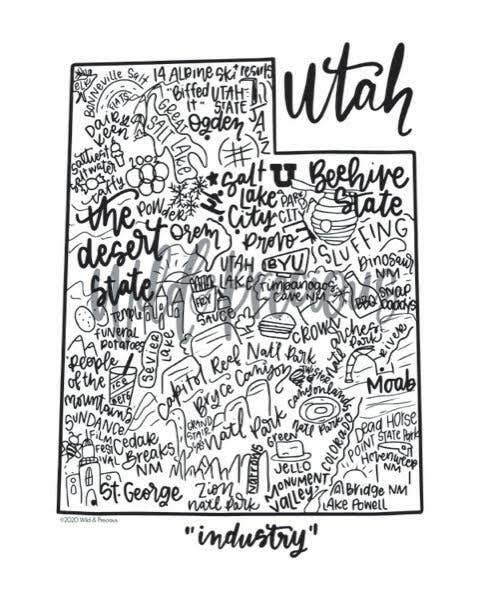 Utah
14 Alpine Ski resorts
Bonneville Salt
FLATS
"Biffed
it"
UTAH
STATE
Ogden
Dairy
Keen
GREAT
SALT LAKE
Saltiest
Saltwater
Taffy
Salt
Lake
City
U
PARK
CITY
Beehive
State
the
desert
state
POWDER
Orem
Provo
SLUFFING
UTAH
LAKE
BYU
Timpanogos
Cave NM
Dinosaur
NM
FRY
SAUCE
BBQ
SNAP
daddys
Wild & Precious
Temple
funeral
Potatoes
SEVIER
Lake
CROWN
Arches
Natl Park
RIVER
people
of the
mountains
ICE
Capitol Reef Nat'l Park
Bryce Canyon
Natl Park
Moab
Canyonlands
Natl Park
COLORADO
SUNDANCE
FILM
FESTIVAL
Cedar
Breaks
NM
GRAND
STAIR
Green
JELLO
Dead Horse
POINT State Park
Hovenweep
NM
St. George
Zion
Natl Park
NARROWS
MONUMENT
VALLEY
Bridge NM
Lake Powell
©2020 Wild & Precious
"industry"